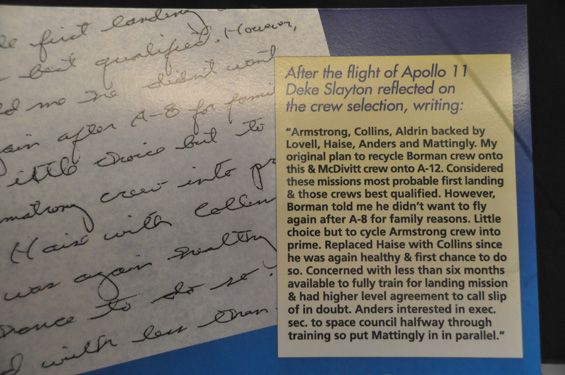 le first landing
best qualified. However,
told me he didn't want
again after A-8 for family
Little choice but to
Armstrong crew into pr
Haise with Collins
was again healthy
chance to do so.
with less than
After the flight of Apollo 11
Deke Slayton reflected on
the crew selection, writing:
"Armstrong, Collins, Aldrin backed by
Lovell, Haise, Anders and Mattingly. My
original plan to recycle Borman crew onto
this & McDivitt crew onto A-12. Considered
these missions most probable first landing
& those crews best qualified. However,
Borman told me he didn't want to fly
again after A-8 for family reasons. Little
choice but to cycle Armstrong crew into
prime. Replaced Haise with Collins since
he was again healthy & first chance to do
so. Concerned with less than six months
available to fully train for landing mission
& had higher level agreement to call slip
of in doubt. Anders interested in exec.
sec. to space council halfway through
training so put Mattingly in in parallel."